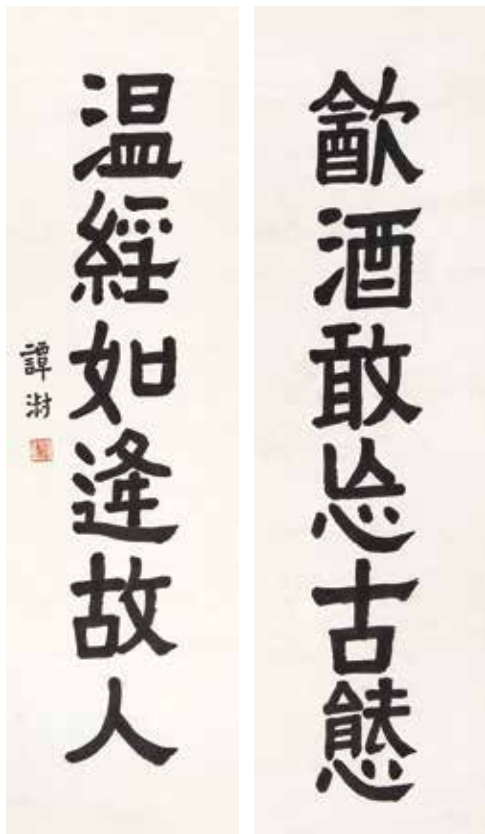 㱃酒敢忘古態
温經如逢故人
譚澍